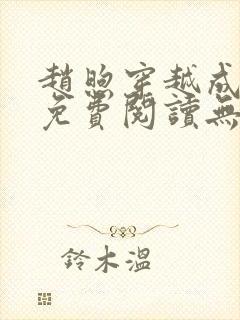 趙煦穿越成
免費閱讀無
鈴木溫